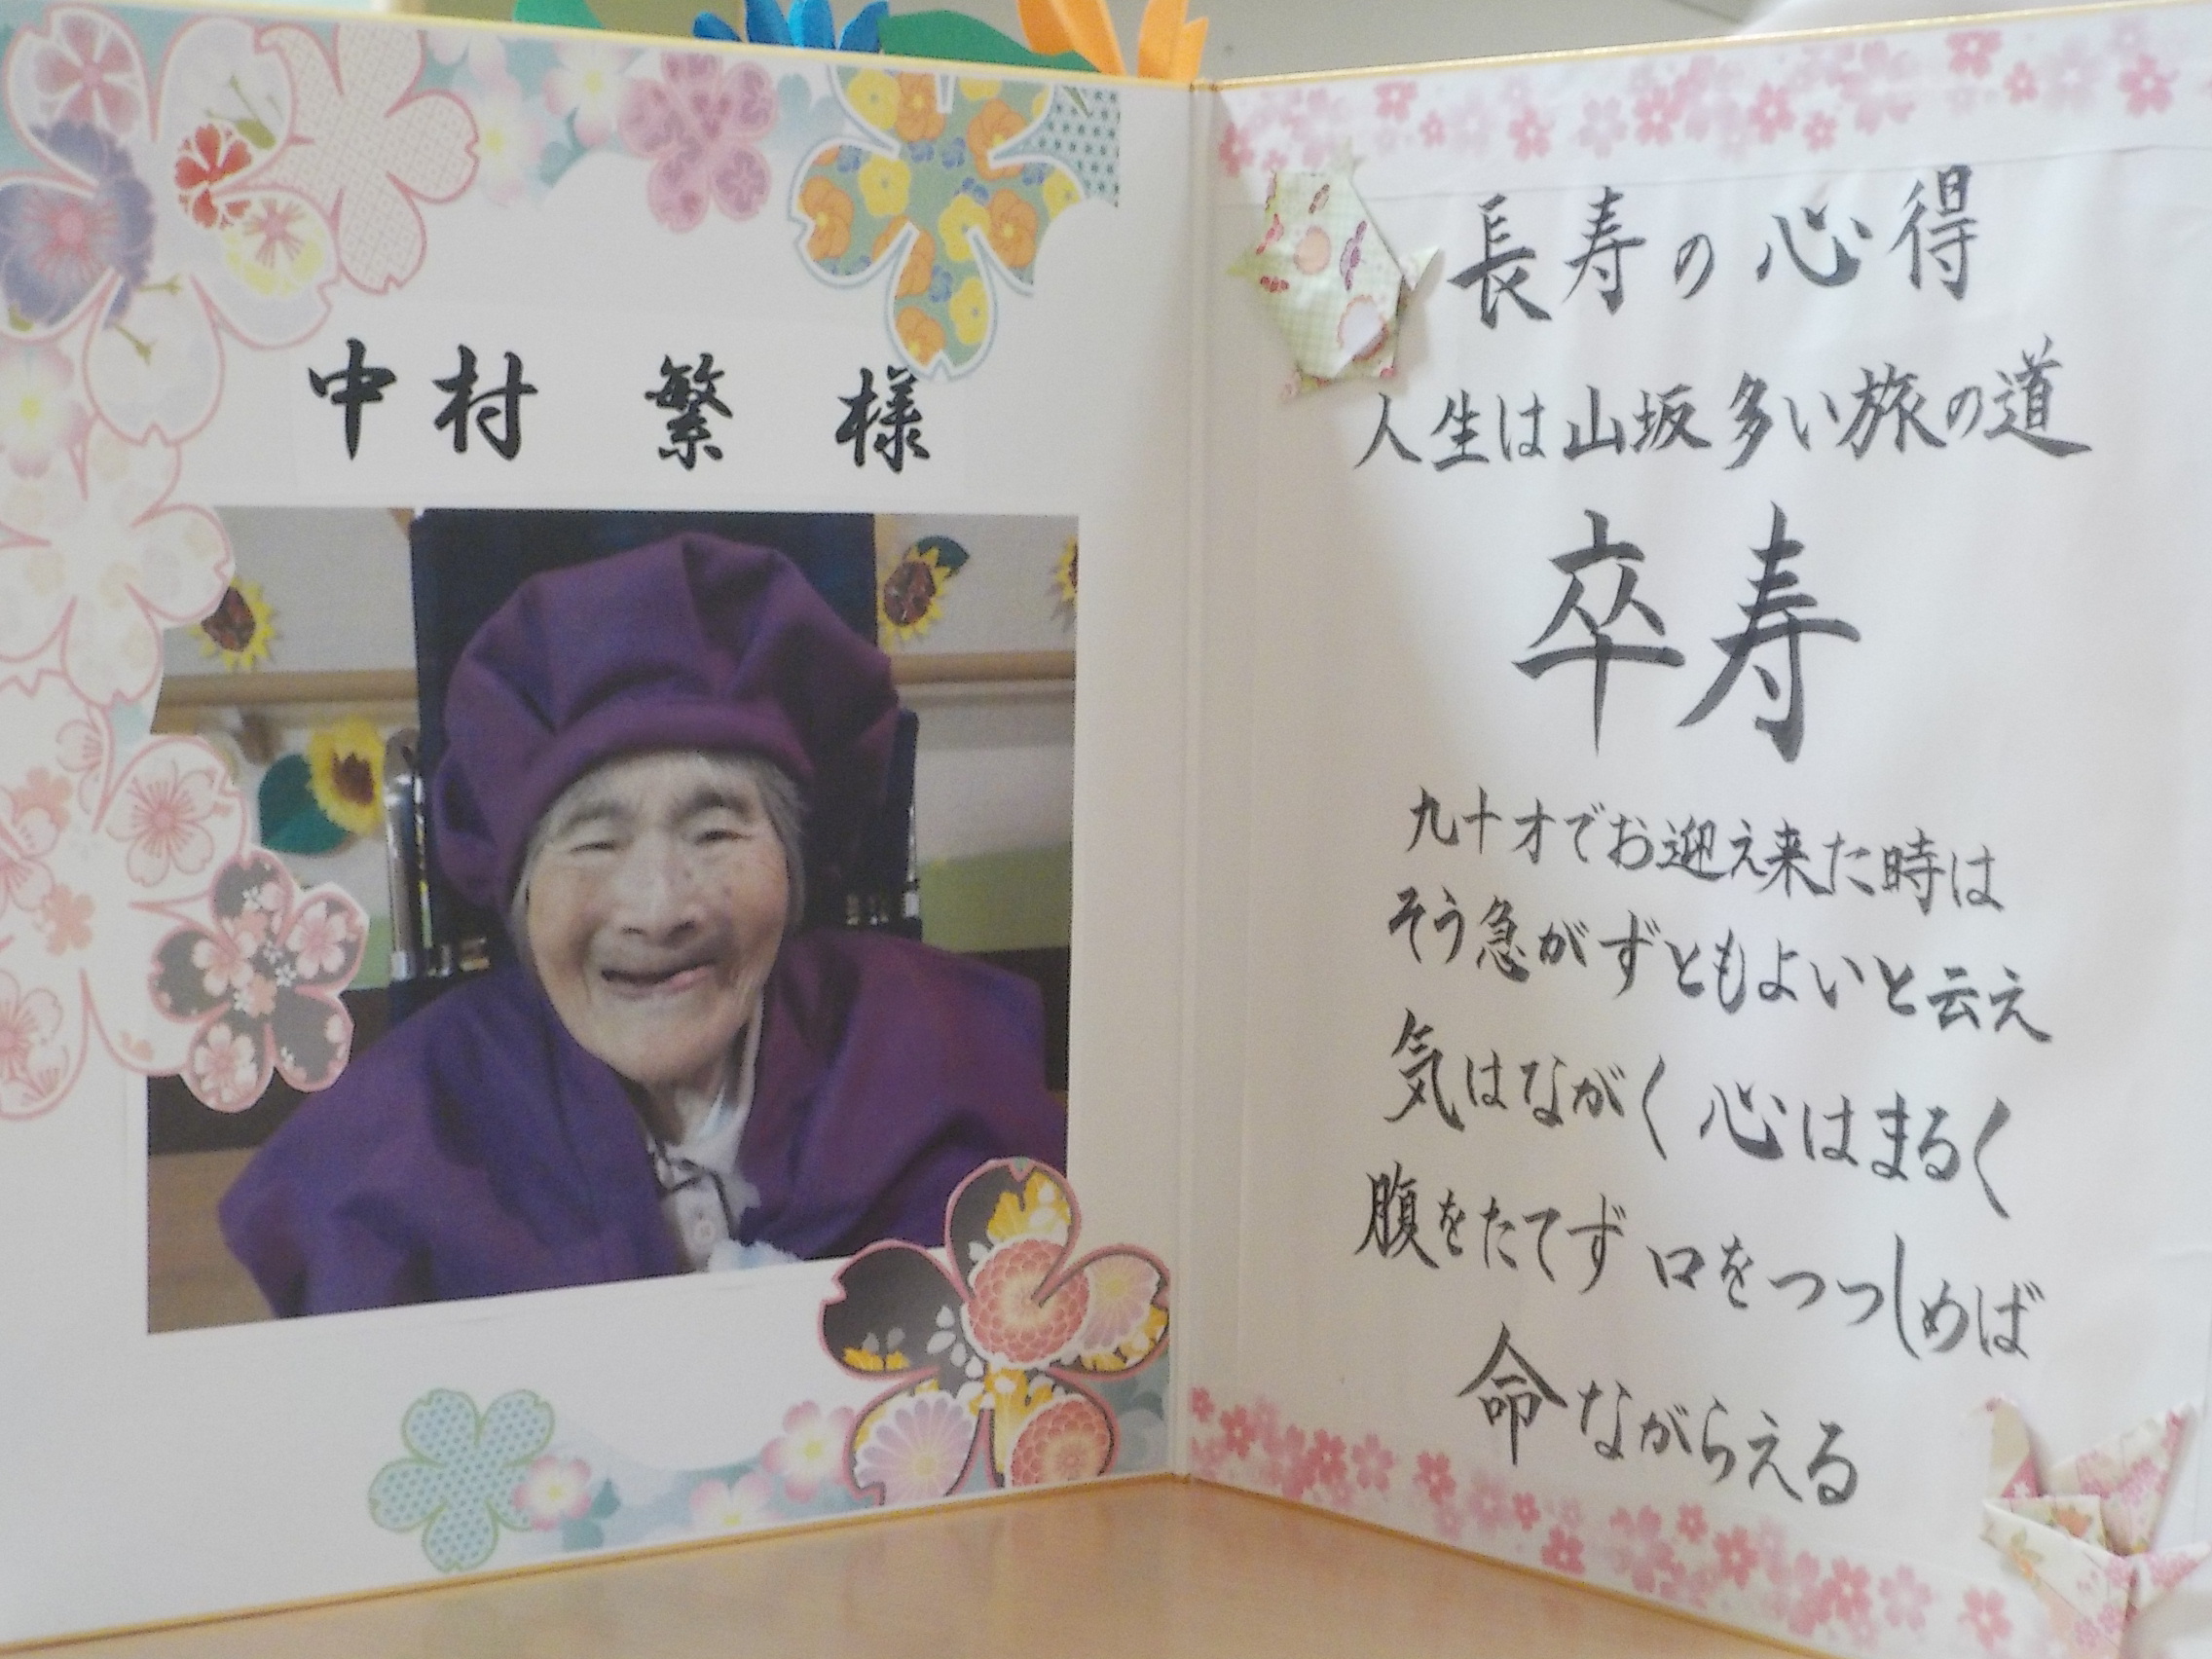 中村 繁 様
長寿の心得
人生は山坂多い旅の道
卒寿
九十才でお迎え来た時は
そう急がずともよいと云え
気はながく 心はまるく
腹をたてず 口をつつしめば
命ながらえる